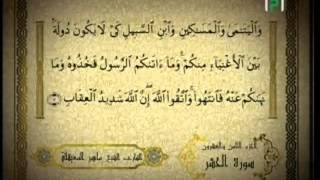 وَالْيَتَـٰمَىٰ وَالْمَسَـٰكِينِ وَابْنِ السَّبِيلِ كَيْ لَا يَكُونَ دُولَةً
بَيْنَ الْأَغْنِيَاءِ مِنكُمْ وَمَا ءَاتَىٰكُمُ الرَّسُولُ فَخُذُوهُ وَمَا
نَهَىٰكُمْ عَنْهُ فَانتَهُوا وَاتَّقُوا اللَّهَ إِنَّ اللَّهَ شَدِيدُ الْعِقَابِ
الجزء الثامن والعشرون
سورة الحشر
القارئ الشيخ ماهر المعيقلي